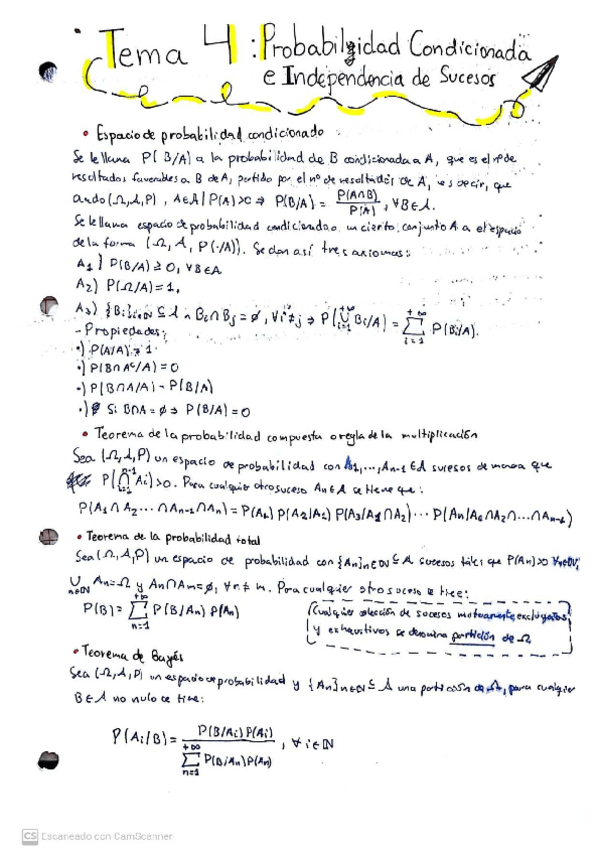 Tema 4: Probabilidad Condicionada
e Independencia de Sucesos
• Espacio de probabilidad condicionado
Se le llama P(B/A) a la probabilidad de B condicionada a A, que es el nº de
resultados favorables a B de A, partido por el nº de resultados de A, es decir, que
dado (Ω, A, P), A∈A | P(A)>0 ⇒ P(B/A) = P(A∩B)/P(A), ∀B∈A.
Se le llama espacio de probabilidad condicionado un cierto conjunto A a el espacio
de la forma (Ω, A, P(·/A)). Se dan así tres axiomas:
A1) P(B/A) ≥ 0, ∀B∈A
A2) P(Ω/A) = 1,
A3) {Bi}i∈N ⊆ A ∩ Bi∩Bj = ∅, ∀i≠j ⇒ P(⋃_{i=1}^{+∞} Bi/A) = ∑_{i=1}^{+∞} P(Bi/A).
- Propiedades:
·) P(A/A) = 1
·) P(B∩Aᶜ/A) = 0
·) P(B∩A/A) = P(B/A)
·) Si B∩A = ∅ ⇒ P(B/A) = 0
• Teorema de la probabilidad compuesta o regla de la multiplicación
Sea (Ω, A, P) un espacio de probabilidad con A1, ..., An-1 ∈ A sucesos de manera que
P(⋂_{i=1}^{n-1} Ai) > 0. Para cualquier otro suceso An ∈ A se tiene que:
P(A1∩A2 ··· ∩An-1∩An) = P(A1) P(A2/A1) P(A3/A1∩A2) ··· P(An/A1∩A2∩...∩An-1)
• Teorema de la probabilidad total
Sea (Ω, A, P) un espacio de probabilidad con {An}n∈N ⊆ A sucesos tales que P(An)>0 ∀n∈N,
⋃_{n∈N} An = Ω y An∩Am = ∅, ∀n ≠ m. Para cualquier otro suceso se tiene:
P(B) = ∑_{n=1}^{+∞} P(B/An) P(An)
Cualquier colección de sucesos mutuamente excluyentes
y exhaustivos se denomina partición de Ω
• Teorema de Bayés
Sea (Ω, A, P) un espacio de probabilidad y {An}n∈N ⊆ A una partición de Ω, para cualquier
B∈A no nulo se tiene:
P(Ai/B) = P(B/Ai)P(Ai) / ∑_{n=1}^{+∞} P(B/An)P(An), ∀i∈N
CS Escaneado con CamScanner